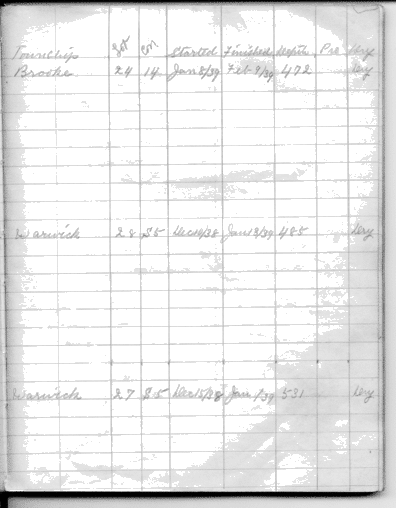 Township Lot Con Started Finished Depth Pro Dry
Brooke 24 14 Jan 8/39 Feb 9/39 472 Dry
Warwick 28 S5 Dec 10/38 Jan 13/39 485 Dry
Warwick 27 S5 Dec 15/38 Jan 1/39 531 Dry